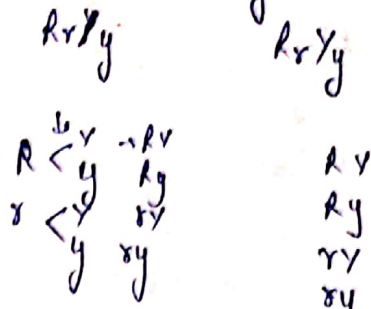 RrYy RrYy
R < Y → RY R Y
y Ry R y
r < Y rY rY
y ry ry